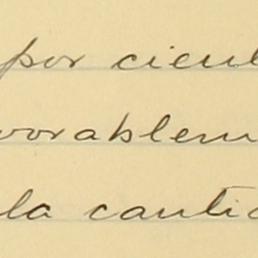 por cient
vorablem
la cantid